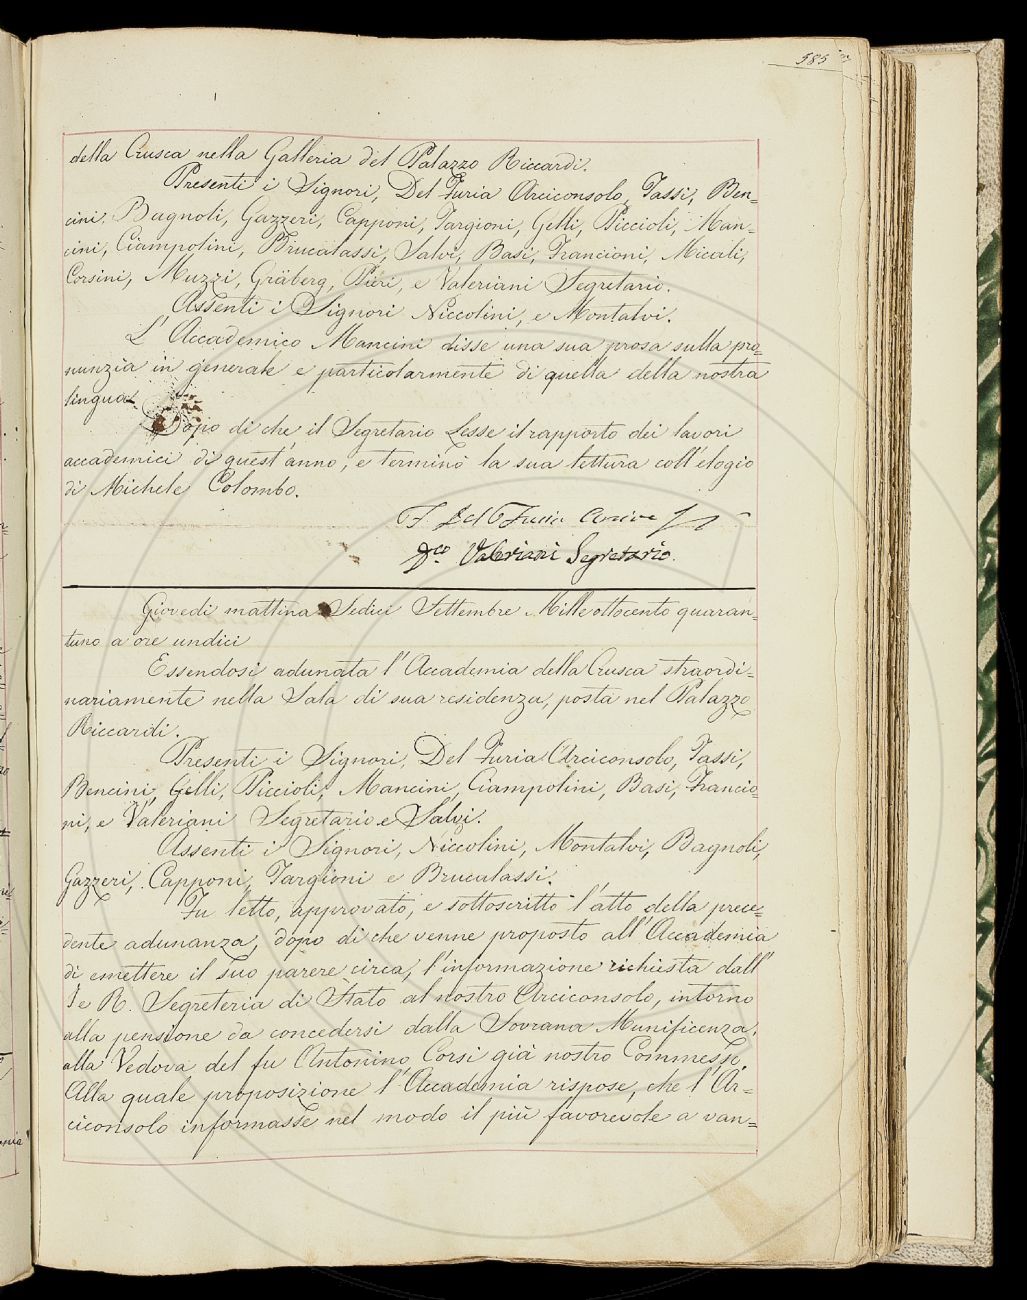 585
della Crusca nella Galleria del Palazzo Riccardi.
Presenti i Signori, Del Furia Arciconsolo, Tassi, Ben=
cini, Bagnoli, Gazzeri, Capponi, Targioni, Gelli, Piccioli, Man=
cini, Ciampolini, Brucalassi, Salvi, Basi, Francioni, Micali,
Corsini, Muzzi, Gräberg, Pieri, e Valeriani Segretario.
Assenti i Signori Niccolini, e Montalvi.
L'Accademico Mancini disse una sua prosa sulla pro=
nunzia in generale e particolarmente di quella della nostra
lingua.
Dopo di che, il Segretario Lesse il rapporto dei lavori
accademici di quest'anno, e terminò la sua lettura coll'elogio
di Michele Colombo.
F. Del Furia
Dco. Valeriani Segretario.
Giovedì mattina Sedici Settembre Mille ottocento quaran=
tuno a ore undici
Essendosi adunata l'Accademia della Crusca straordi=
nariamente nella Sala di sua residenza, posta nel Palazzo
Riccardi.
Presenti i Signori, Del Furia Arciconsolo, Tassi,
Bencini, Gelli, Piccioli, Mancini, Ciampolini, Basi, Francio=
ni, e Valeriani Segretario e Salvi.
Assenti i Signori, Niccolini, Montalvi, Bagnoli,
Gazzeri, Capponi, Targioni e Brucalassi.
Fu letto, approvato, e sottoscritto l'atto della prece=
dente adunanza, dopo di che venne proposto all'Accademia
di emettere il suo parere circa, l'informazione richiesta dall'
I e R. Segreteria di Stato al nostro Arciconsolo, intorno
alla pensione da concedersi dalla Sovrana Munificenza,
alla Vedova del fu Antonino Corsi già nostro Commesso,
Alla quale proposizione l'Accademia rispose, che l'Ar=
ciconsolo informasse nel modo il più favorevole a van=